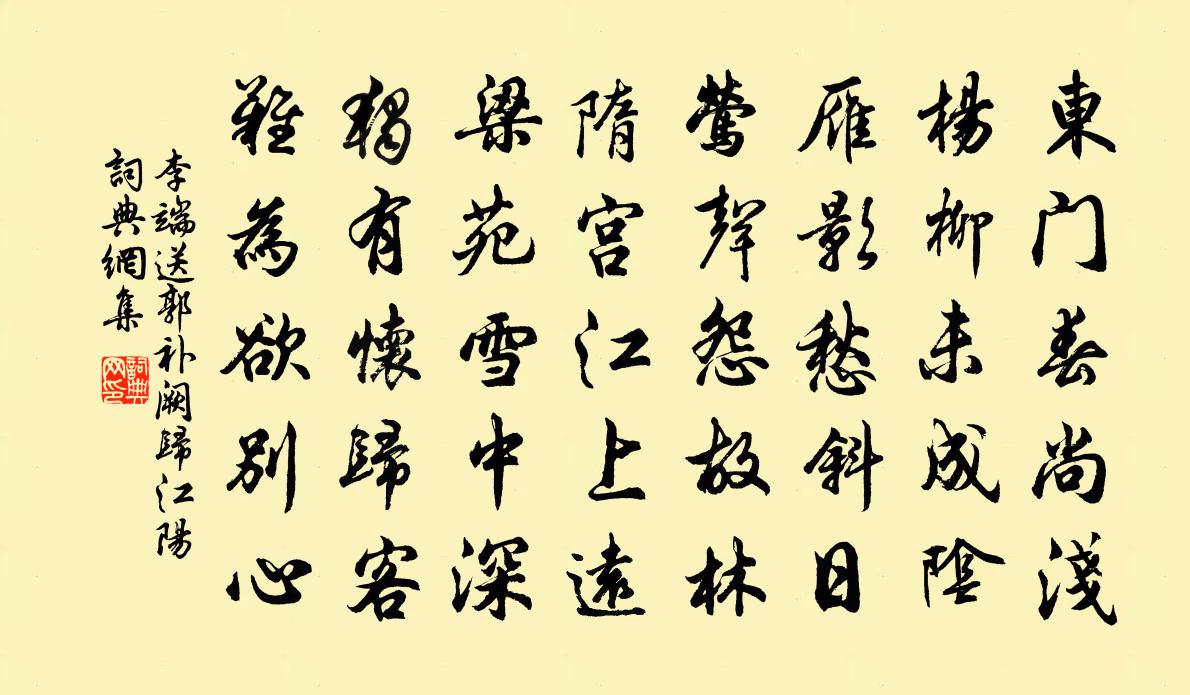 東门春尚淺
楊柳未成陰
雁影愁斜日
鶯聲怨故林
隋宫江上遠
梁苑雪中深
獨有懷歸客
難為欲別心
李端送郭补阙歸江陽
詞典網集
詞典网印